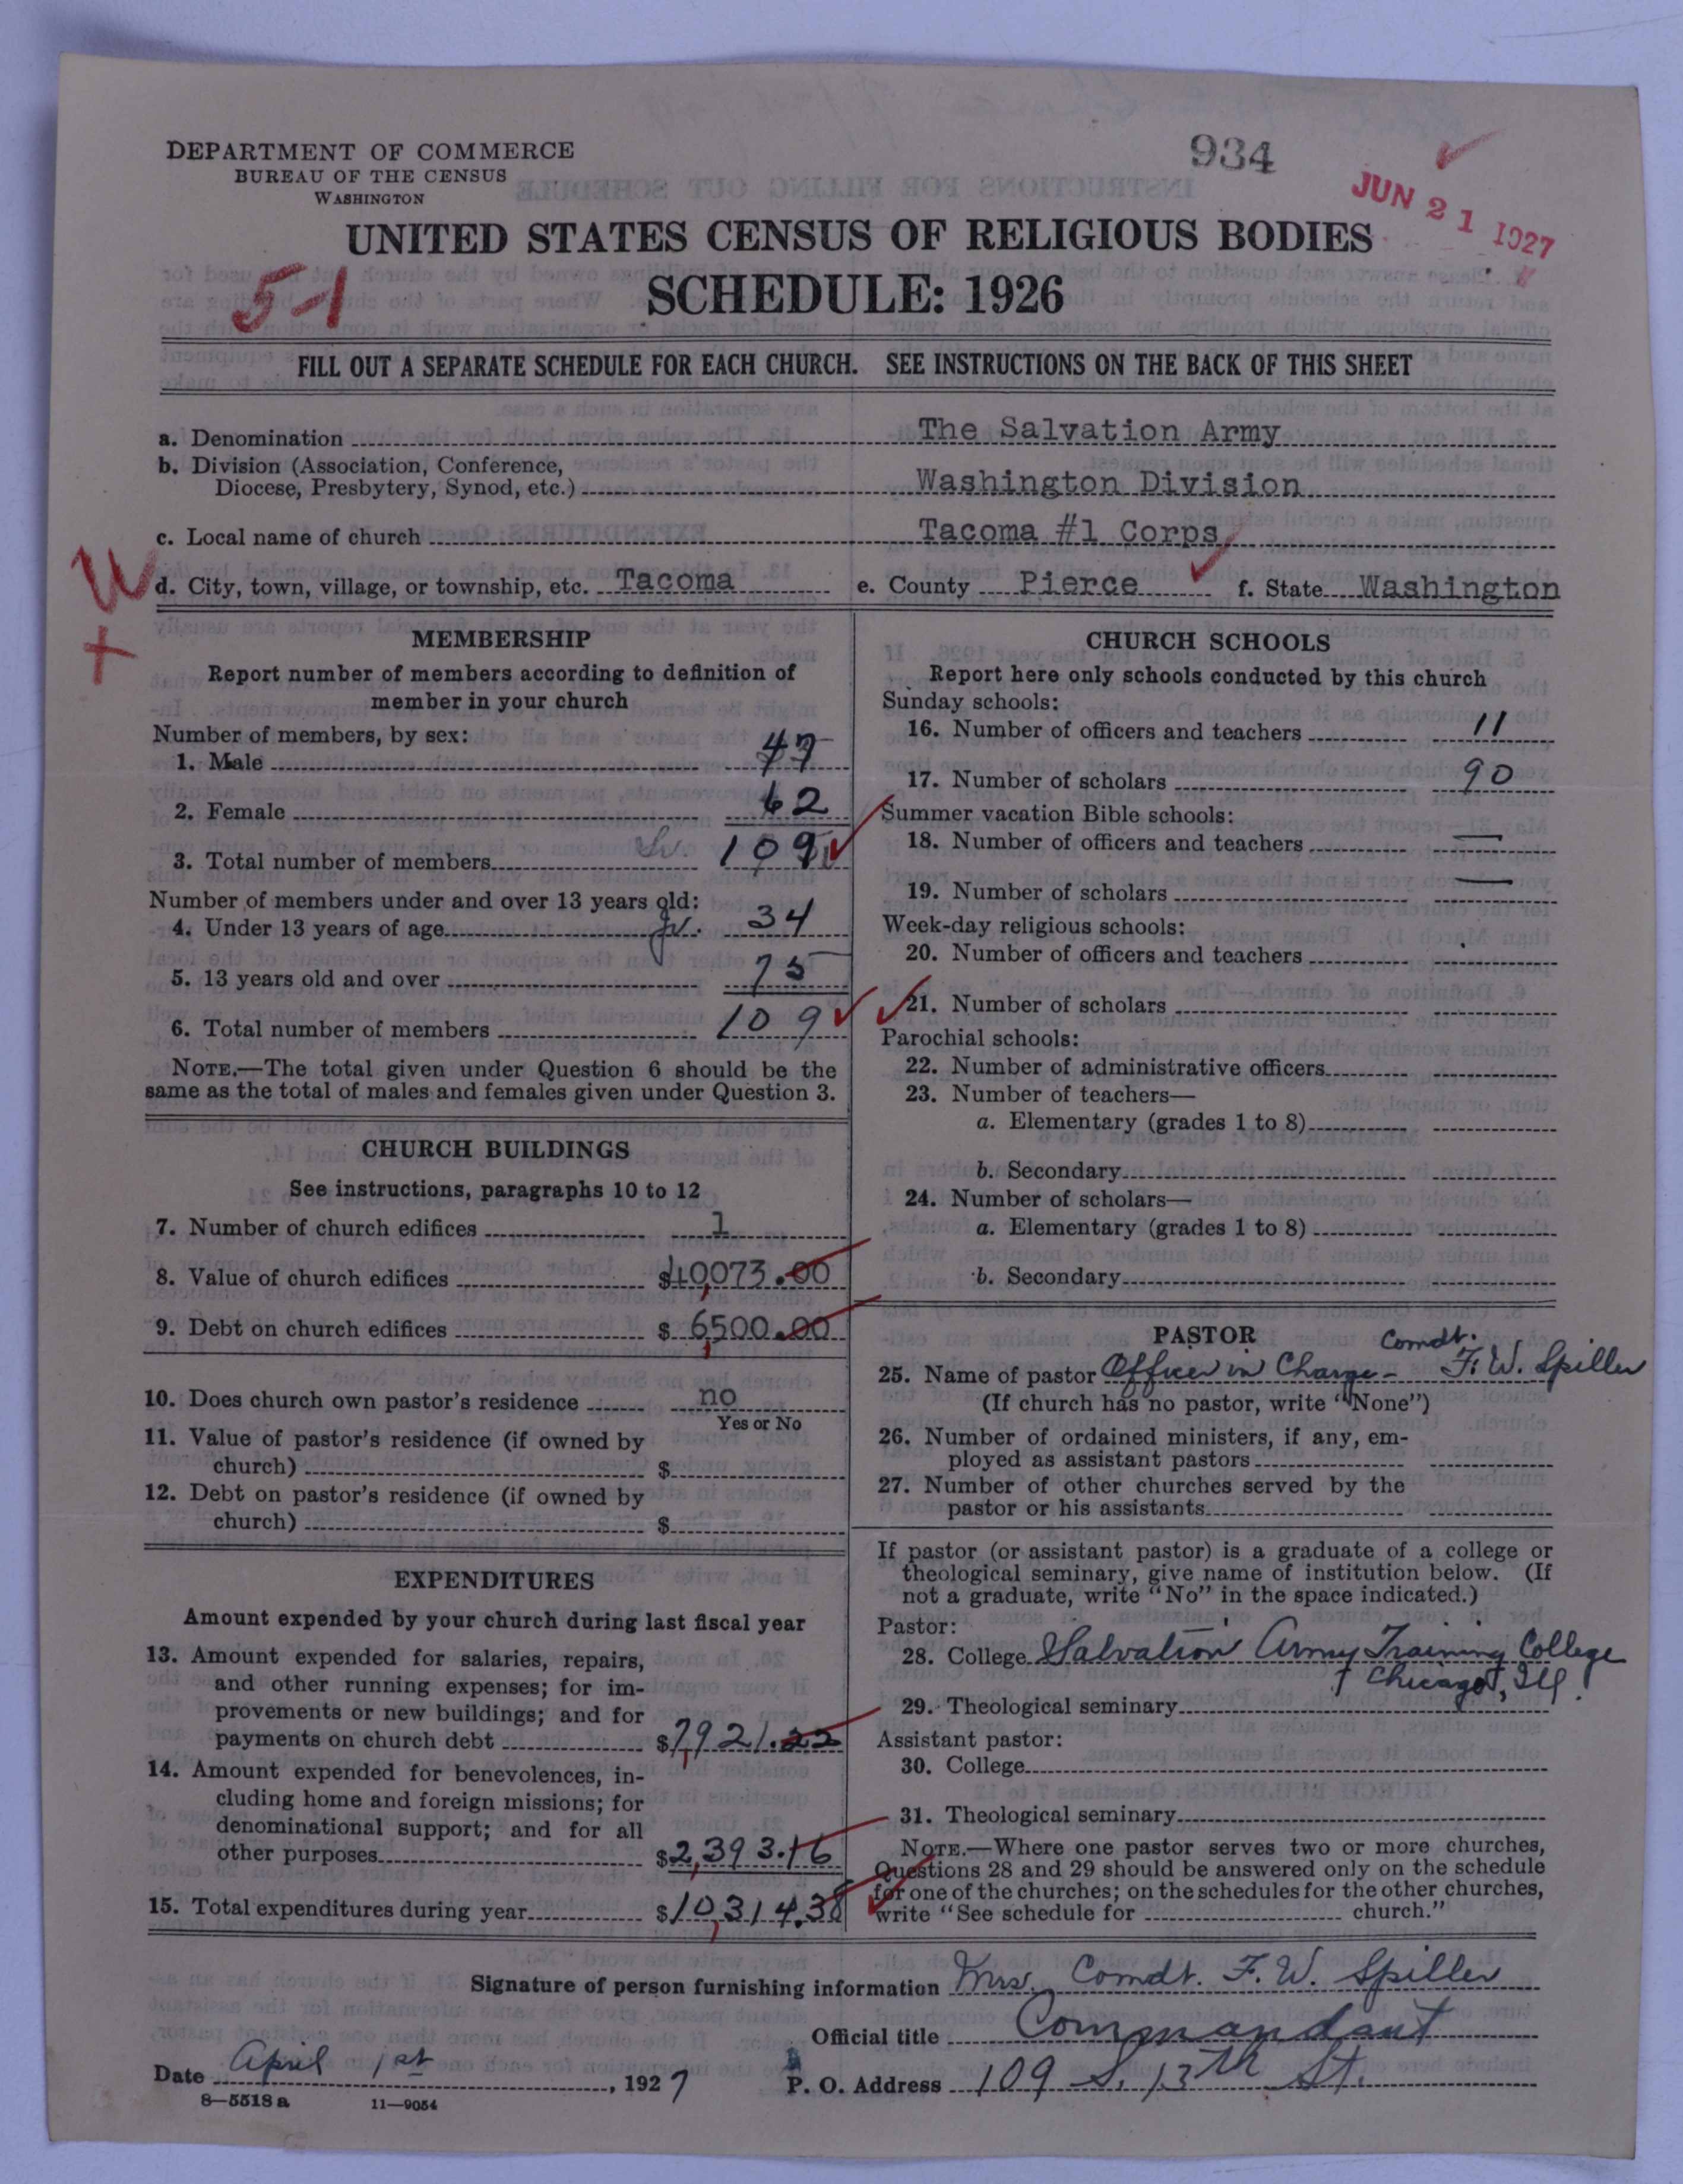 DEPARTMENT OF COMMERCE
BUREAU OF THE CENSUS
WASHINGTON
934
JUN 21 1927
UNITED STATES CENSUS OF RELIGIOUS BODIES
SCHEDULE: 1926
51
FILL OUT A SEPARATE SCHEDULE FOR EACH CHURCH. SEE INSTRUCTIONS ON THE BACK OF THIS SHEET
a. Denomination The Salvation Army
b. Division (Association, Conference,
Diocese, Presbytery, Synod, etc.) Washington Division
c. Local name of church Tacoma #1 Corps
W
+
d. City, town, village, or township, etc. Tacoma e. County Pierce f. State Washington
MEMBERSHIP
Report number of members according to definition of
member in your church
Number of members, by sex:
1. Male 47
2. Female 62
3. Total number of members Sr. 109
Number of members under and over 13 years old:
4. Under 13 years of age Jr. 34
5. 13 years old and over 75
6. Total number of members 109
NOTE.—The total given under Question 6 should be the
same as the total of males and females given under Question 3.
CHURCH BUILDINGS
See instructions, paragraphs 10 to 12
7. Number of church edifices 1
8. Value of church edifices $40,073.00
9. Debt on church edifices $ 6,500.00
10. Does church own pastor's residence no
Yes or No
11. Value of pastor's residence (if owned by
church) $
12. Debt on pastor's residence (if owned by
church) $
EXPENDITURES
Amount expended by your church during last fiscal year
13. Amount expended for salaries, repairs,
and other running expenses; for im-
provements or new buildings; and for
payments on church debt $7,921.22
14. Amount expended for benevolences, in-
cluding home and foreign missions; for
denominational support; and for all
other purposes $2,393.16
15. Total expenditures during year $10,314.38
CHURCH SCHOOLS
Report here only schools conducted by this church
Sunday schools:
16. Number of officers and teachers 11
17. Number of scholars 90
Summer vacation Bible schools:
18. Number of officers and teachers —
19. Number of scholars —
Week-day religious schools:
20. Number of officers and teachers
21. Number of scholars
Parochial schools:
22. Number of administrative officers
23. Number of teachers—
a. Elementary (grades 1 to 8)
b. Secondary
24. Number of scholars—
a. Elementary (grades 1 to 8)
b. Secondary
PASTOR
25. Name of pastor Officer in Charge - Comdt. F. W. Spiller
(If church has no pastor, write "None")
26. Number of ordained ministers, if any, em-
ployed as assistant pastors
27. Number of other churches served by the
pastor or his assistants
If pastor (or assistant pastor) is a graduate of a college or
theological seminary, give name of institution below. (If
not a graduate, write "No" in the space indicated.)
Pastor:
28. College Salvation Army Training College
Chicago, Ill.
29. Theological seminary
Assistant pastor:
30. College
31. Theological seminary
NOTE.—Where one pastor serves two or more churches,
Questions 28 and 29 should be answered only on the schedule
for one of the churches; on the schedules for the other churches,
write "See schedule for church."
Signature of person furnishing information Mrs. Comdt. F. W. Spiller
Official title Commandant
Date April 1st, 1927 P. O. Address 109 S. 13th St.
8—5518 a 11—9054